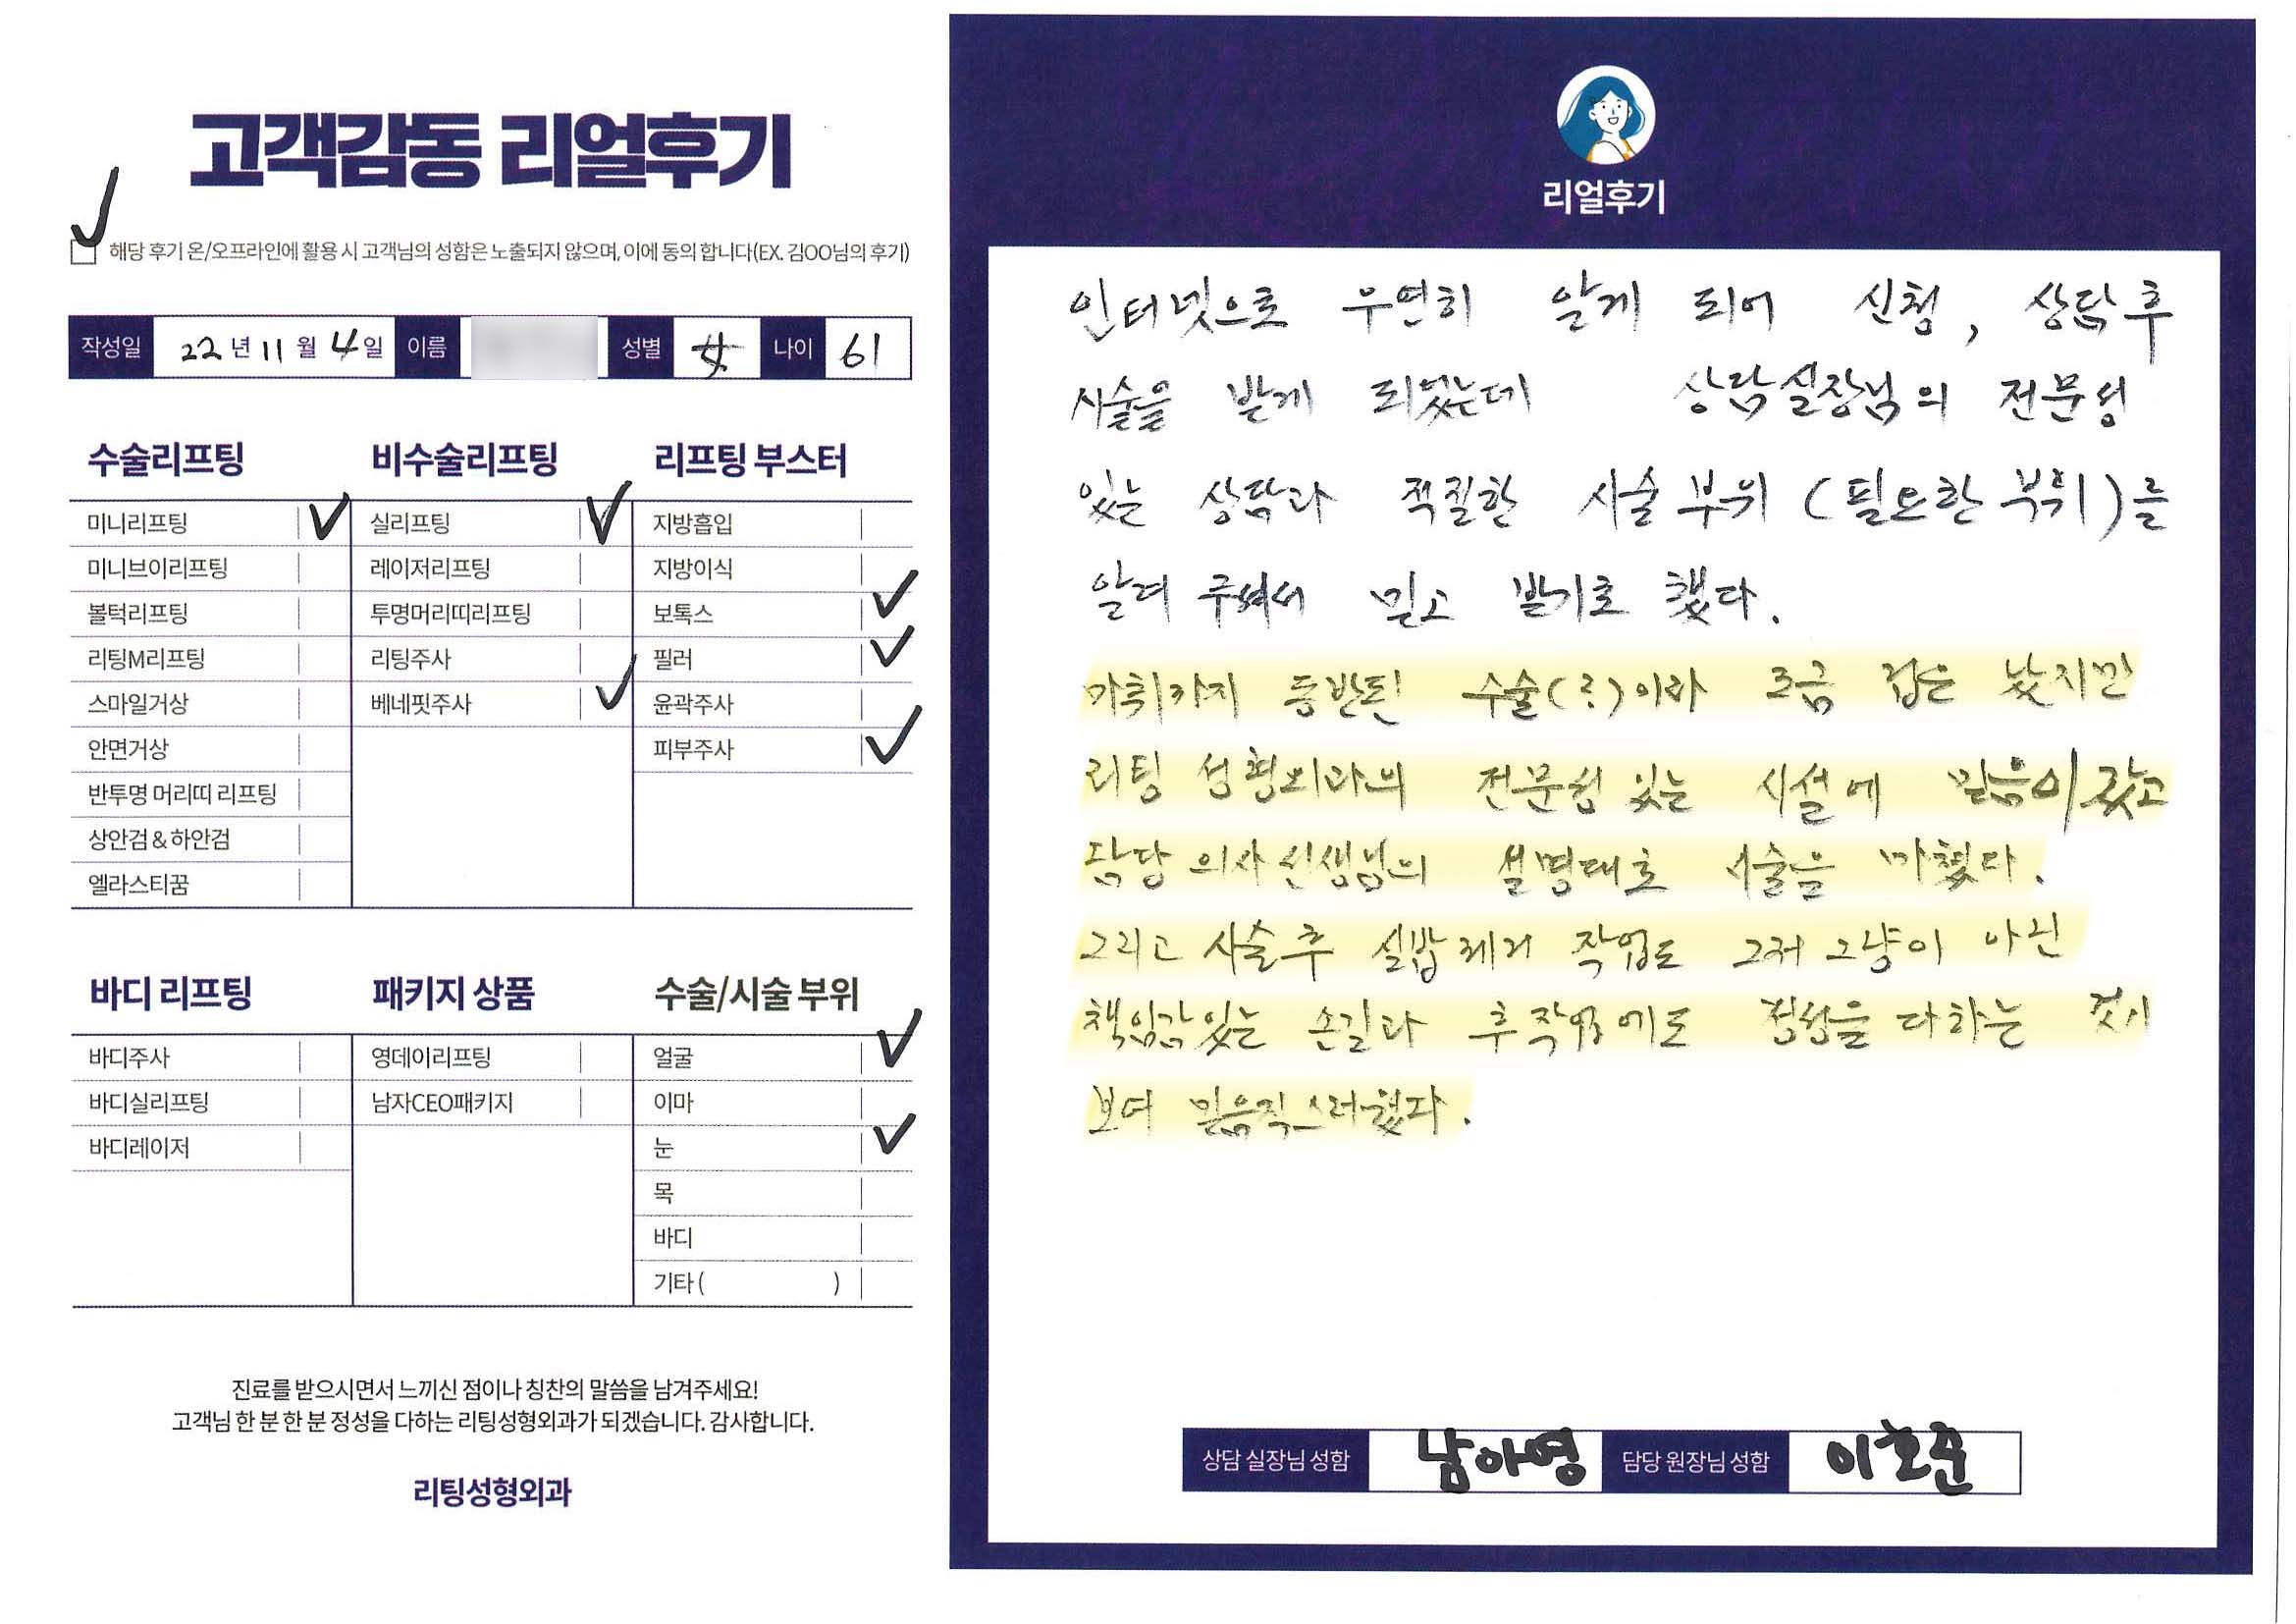 고객감동 리얼후기
해당 후기 온/오프라인에 활용 시 고객님의 성함은 노출되지 않으며, 이에 동의 합니다(EX. 김OO님의 후기)
작성일 22년 11월 4일 이름 성별 女 나이 61
수술리프팅
미니리프팅
미니브이리프팅
볼턱리프팅
리팅M리프팅
스마일거상
안면거상
반투명 머리띠 리프팅
상안검 & 하안검
엘라스티꿈
비수술리프팅
실리프팅
레이저리프팅
투명머리띠리프팅
리팅주사
베네핏주사
리프팅 부스터
지방흡입
지방이식
보톡스
필러
윤곽주사
피부주사
바디 리프팅
바디주사
바디실리프팅
바디레이저
패키지 상품
영데이리프팅
남자CEO패키지
수술/시술 부위
얼굴
이마
눈
목
바디
기타 ( )
진료를 받으시면서 느끼신 점이나 칭찬의 말씀을 남겨주세요!
고객님 한 분 한 분 정성을 다하는 리팅성형외과가 되겠습니다. 감사합니다.
리팅성형외과
리얼후기
인터넷으로 우연히 알게 되어 신청, 상담후
시술을 받게 되었는데 상담실장님의 전문성
있는 상담과 적절한 시술부위 (필요한 부위)를
알려 주셔서 믿고 받기로 했다.
마취까지 동반된 수술(?)이라 조금 겁은 났지만
리팅 성형외과의 전문성 있는 시설에 믿음이 갔고
담당 의사선생님의 설명대로 시술을 마쳤다.
그리고 시술후 실밥제거 작업도 그저 그냥이 아닌
책임감있는 손길과 후작업에도 정성을 다하는 것이
보여 믿음직스러웠다.
상담 실장님 성함 남아영 담당 원장님 성함 이호준